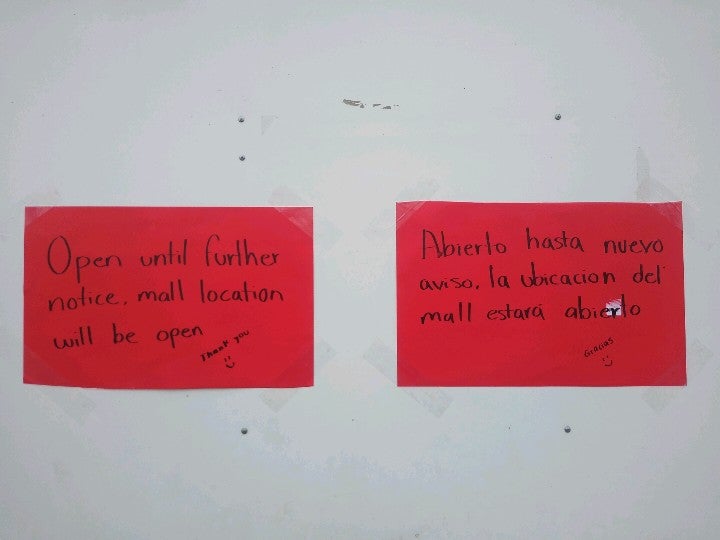 Open until further
notice, mall location
will be open
Thank you
Abierto hasta nuevo
aviso, la ubicacion del
mall estará abierto
Gracias